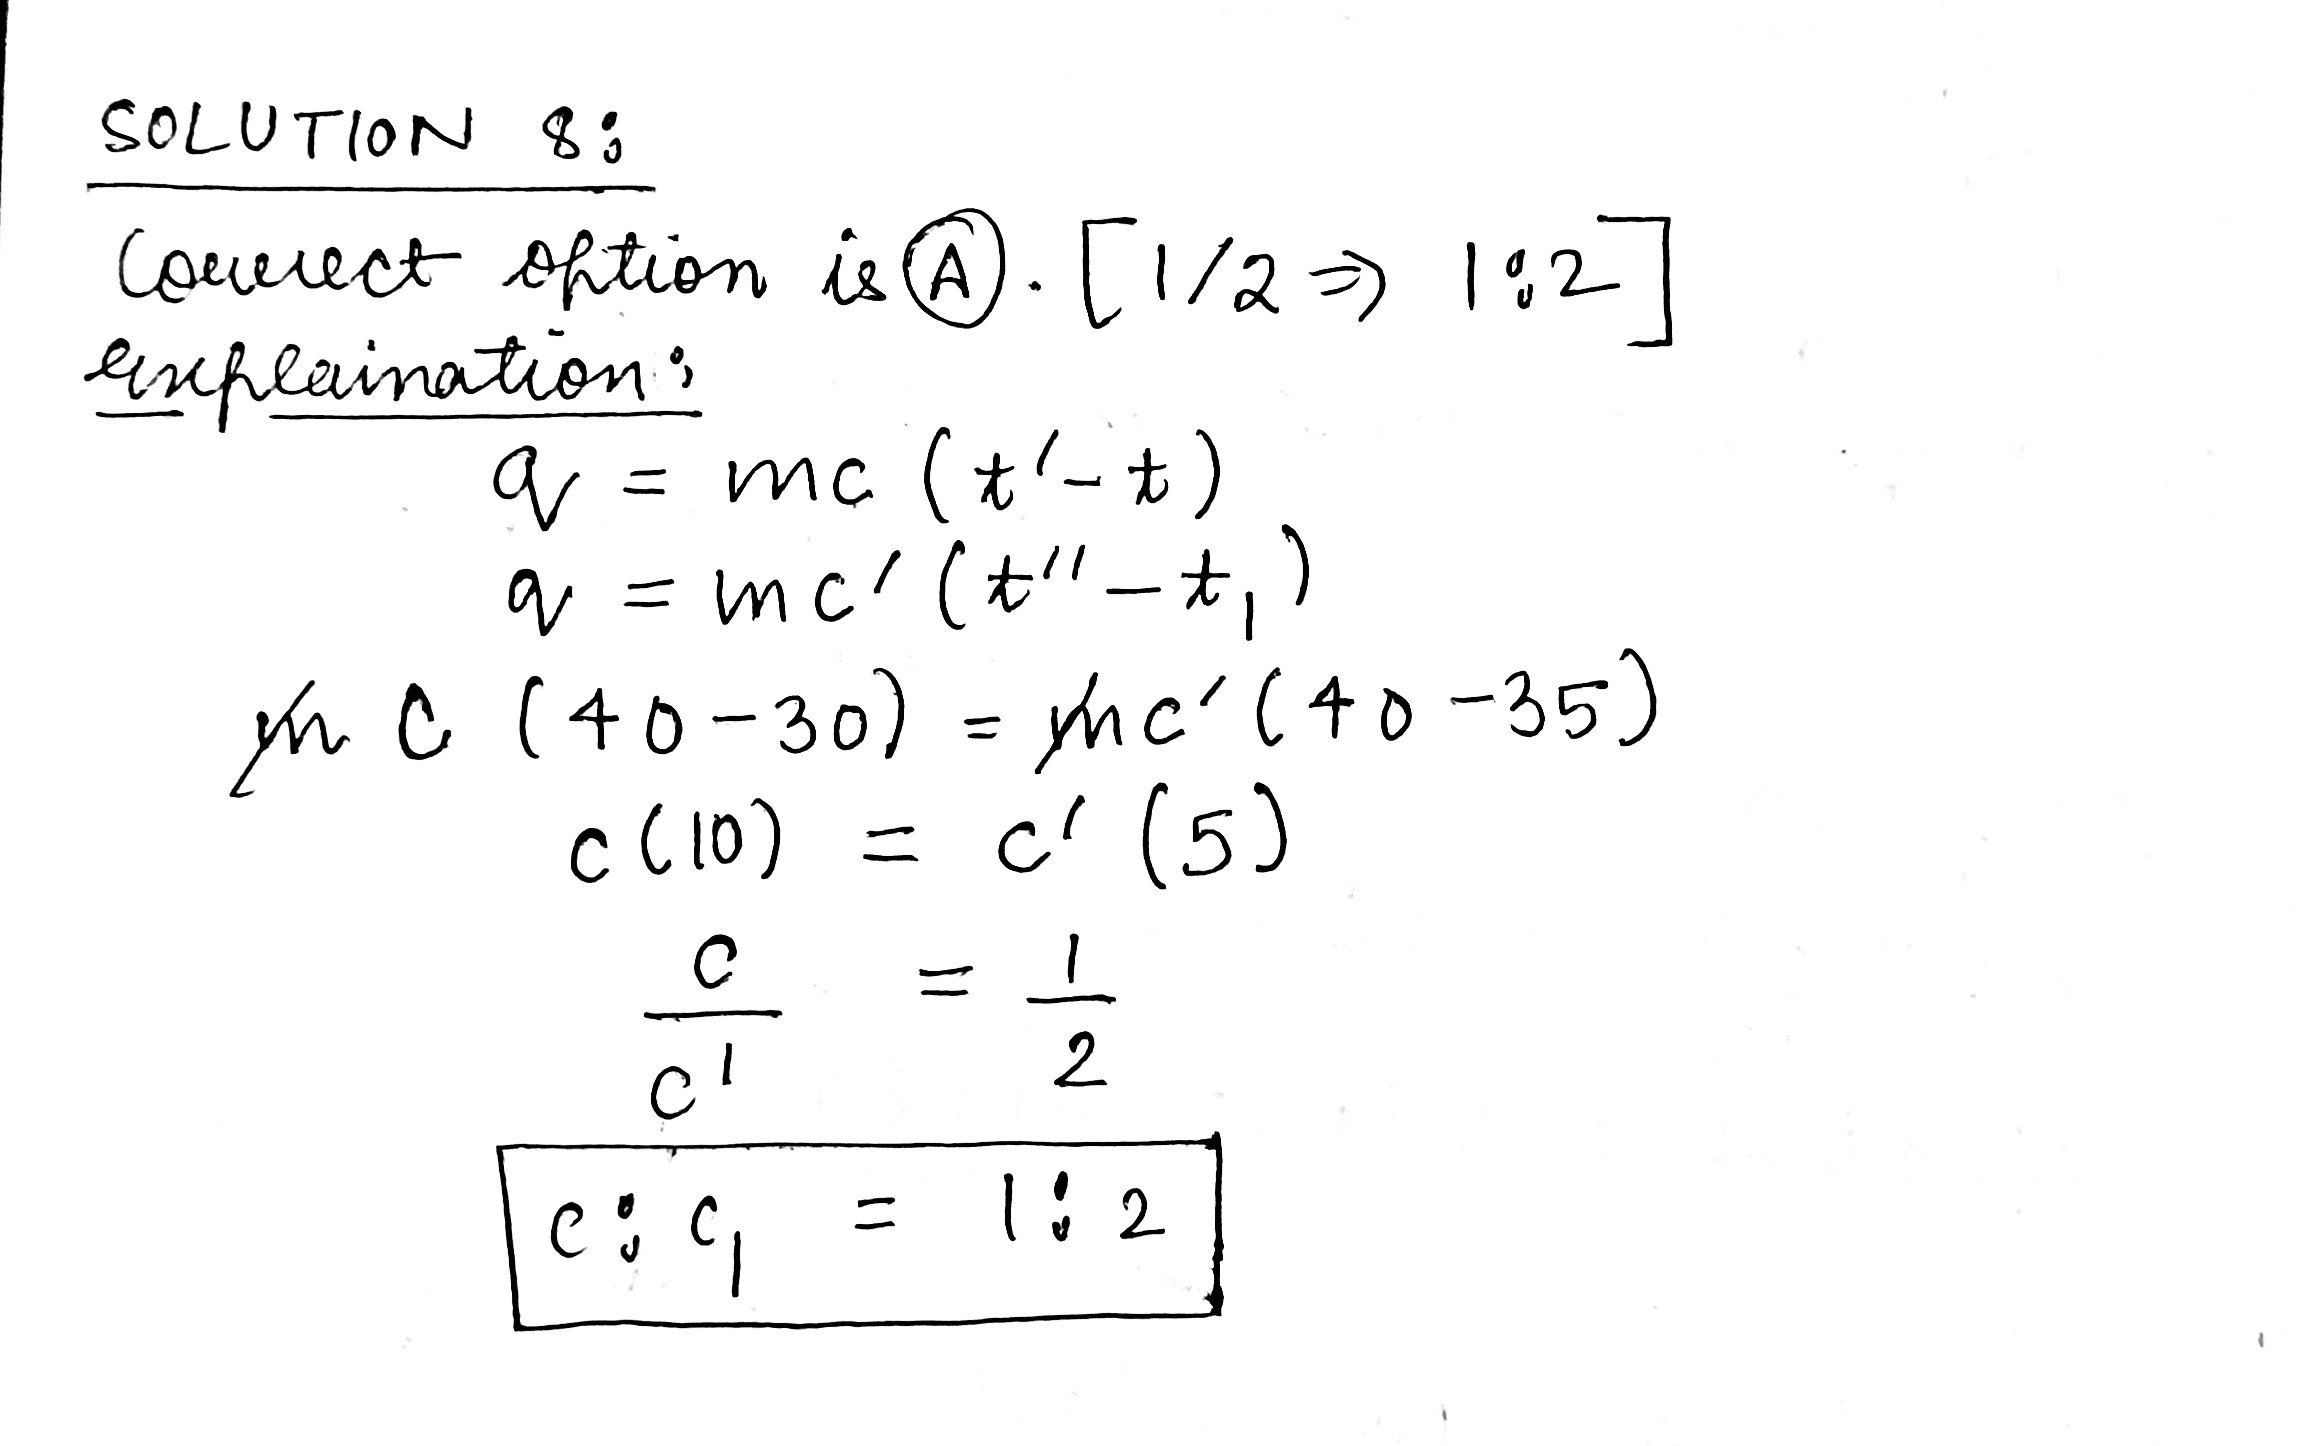 SOLUTION 8:
Correct option is (A). [1/2 ⇒ 1:2]
explaination:
q = mc (t' - t)
q = mc' (t'' - t₁)
m c (40 - 30) = m c' (40 - 35)
c (10) = c' (5)
c/c' = 1/2
c : c₁ = 1 : 2